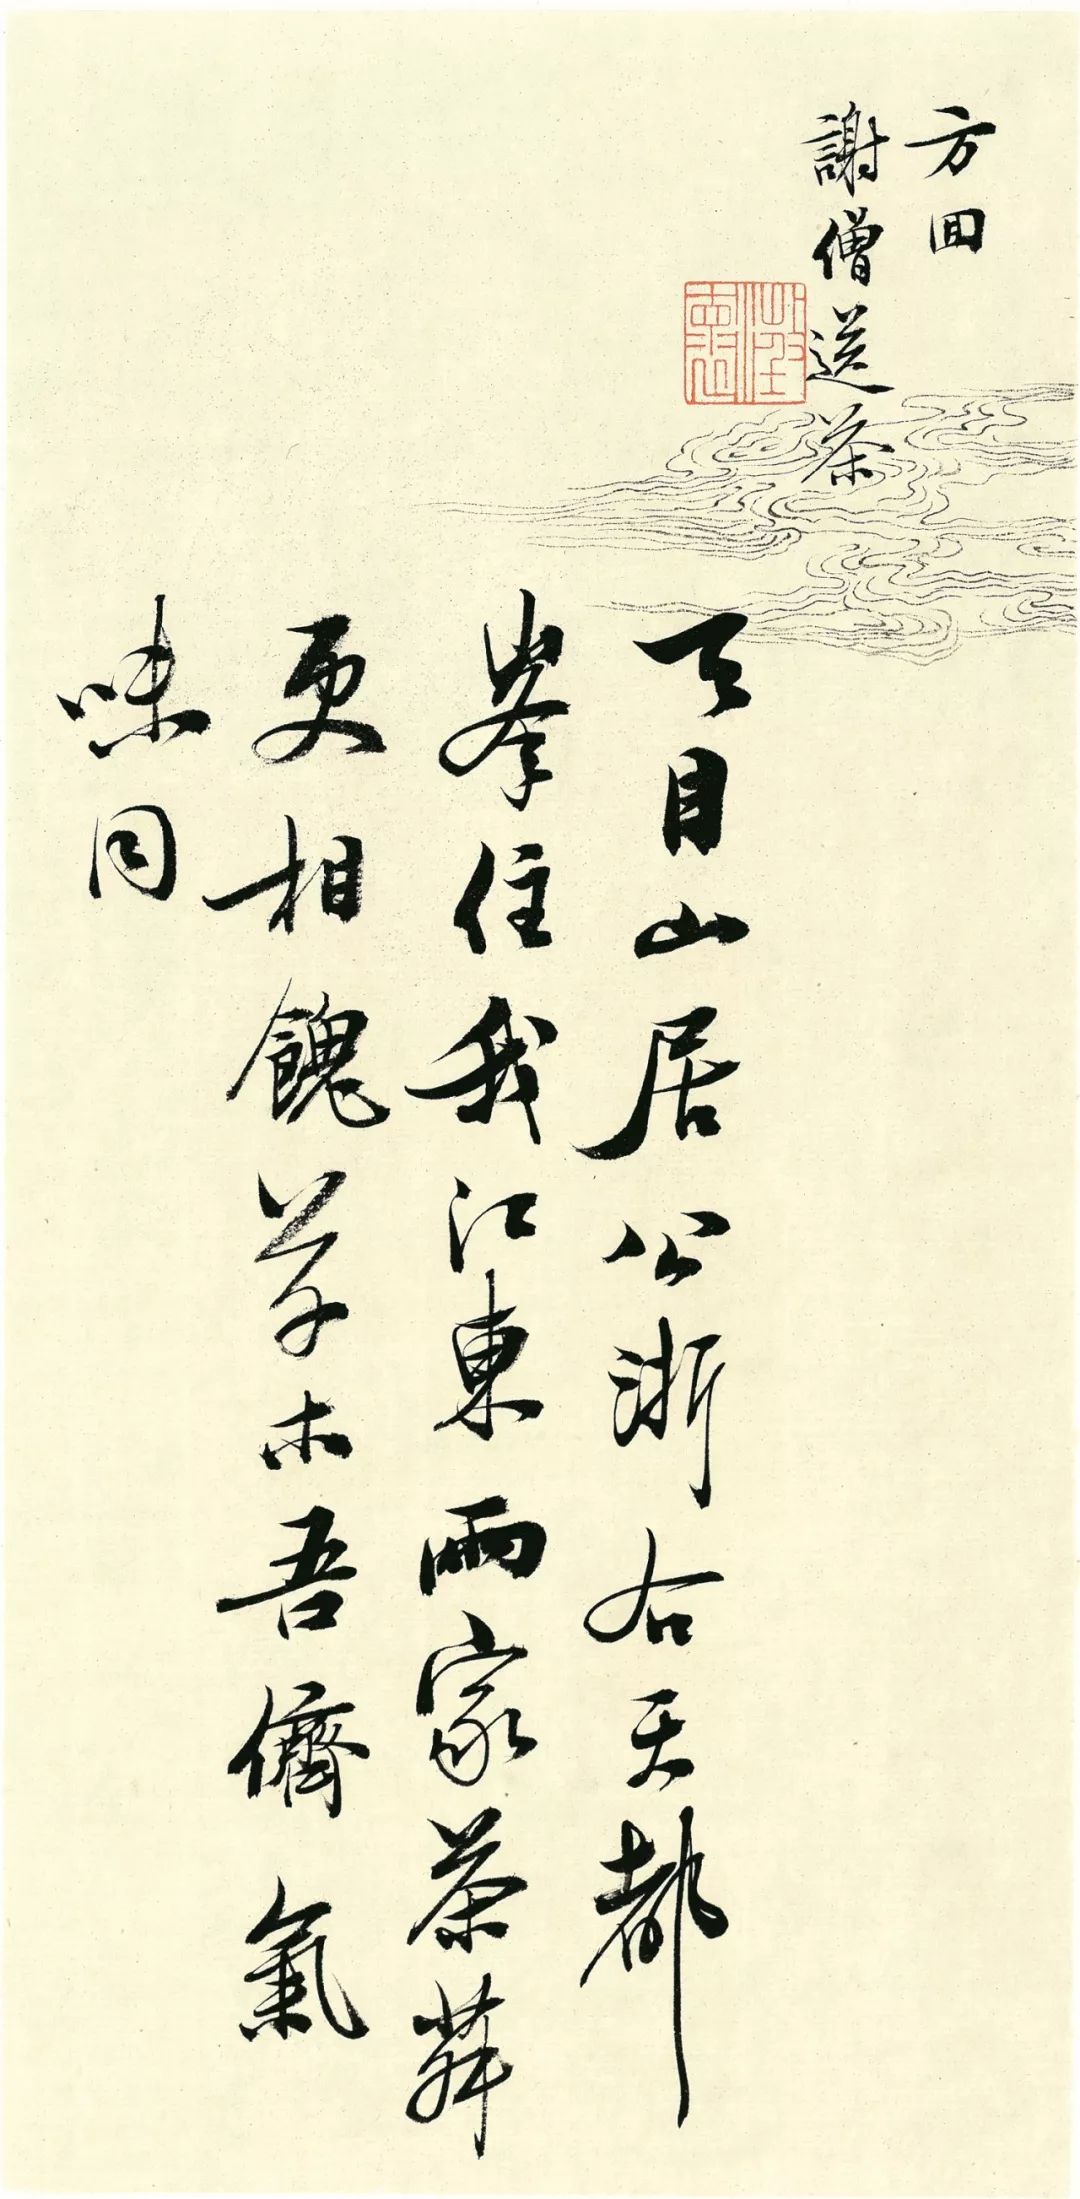 方回
謝僧送茶
天目山居公浙右天都
峯住我江東兩家茶荈
更相餽草木吾儕氣
味同